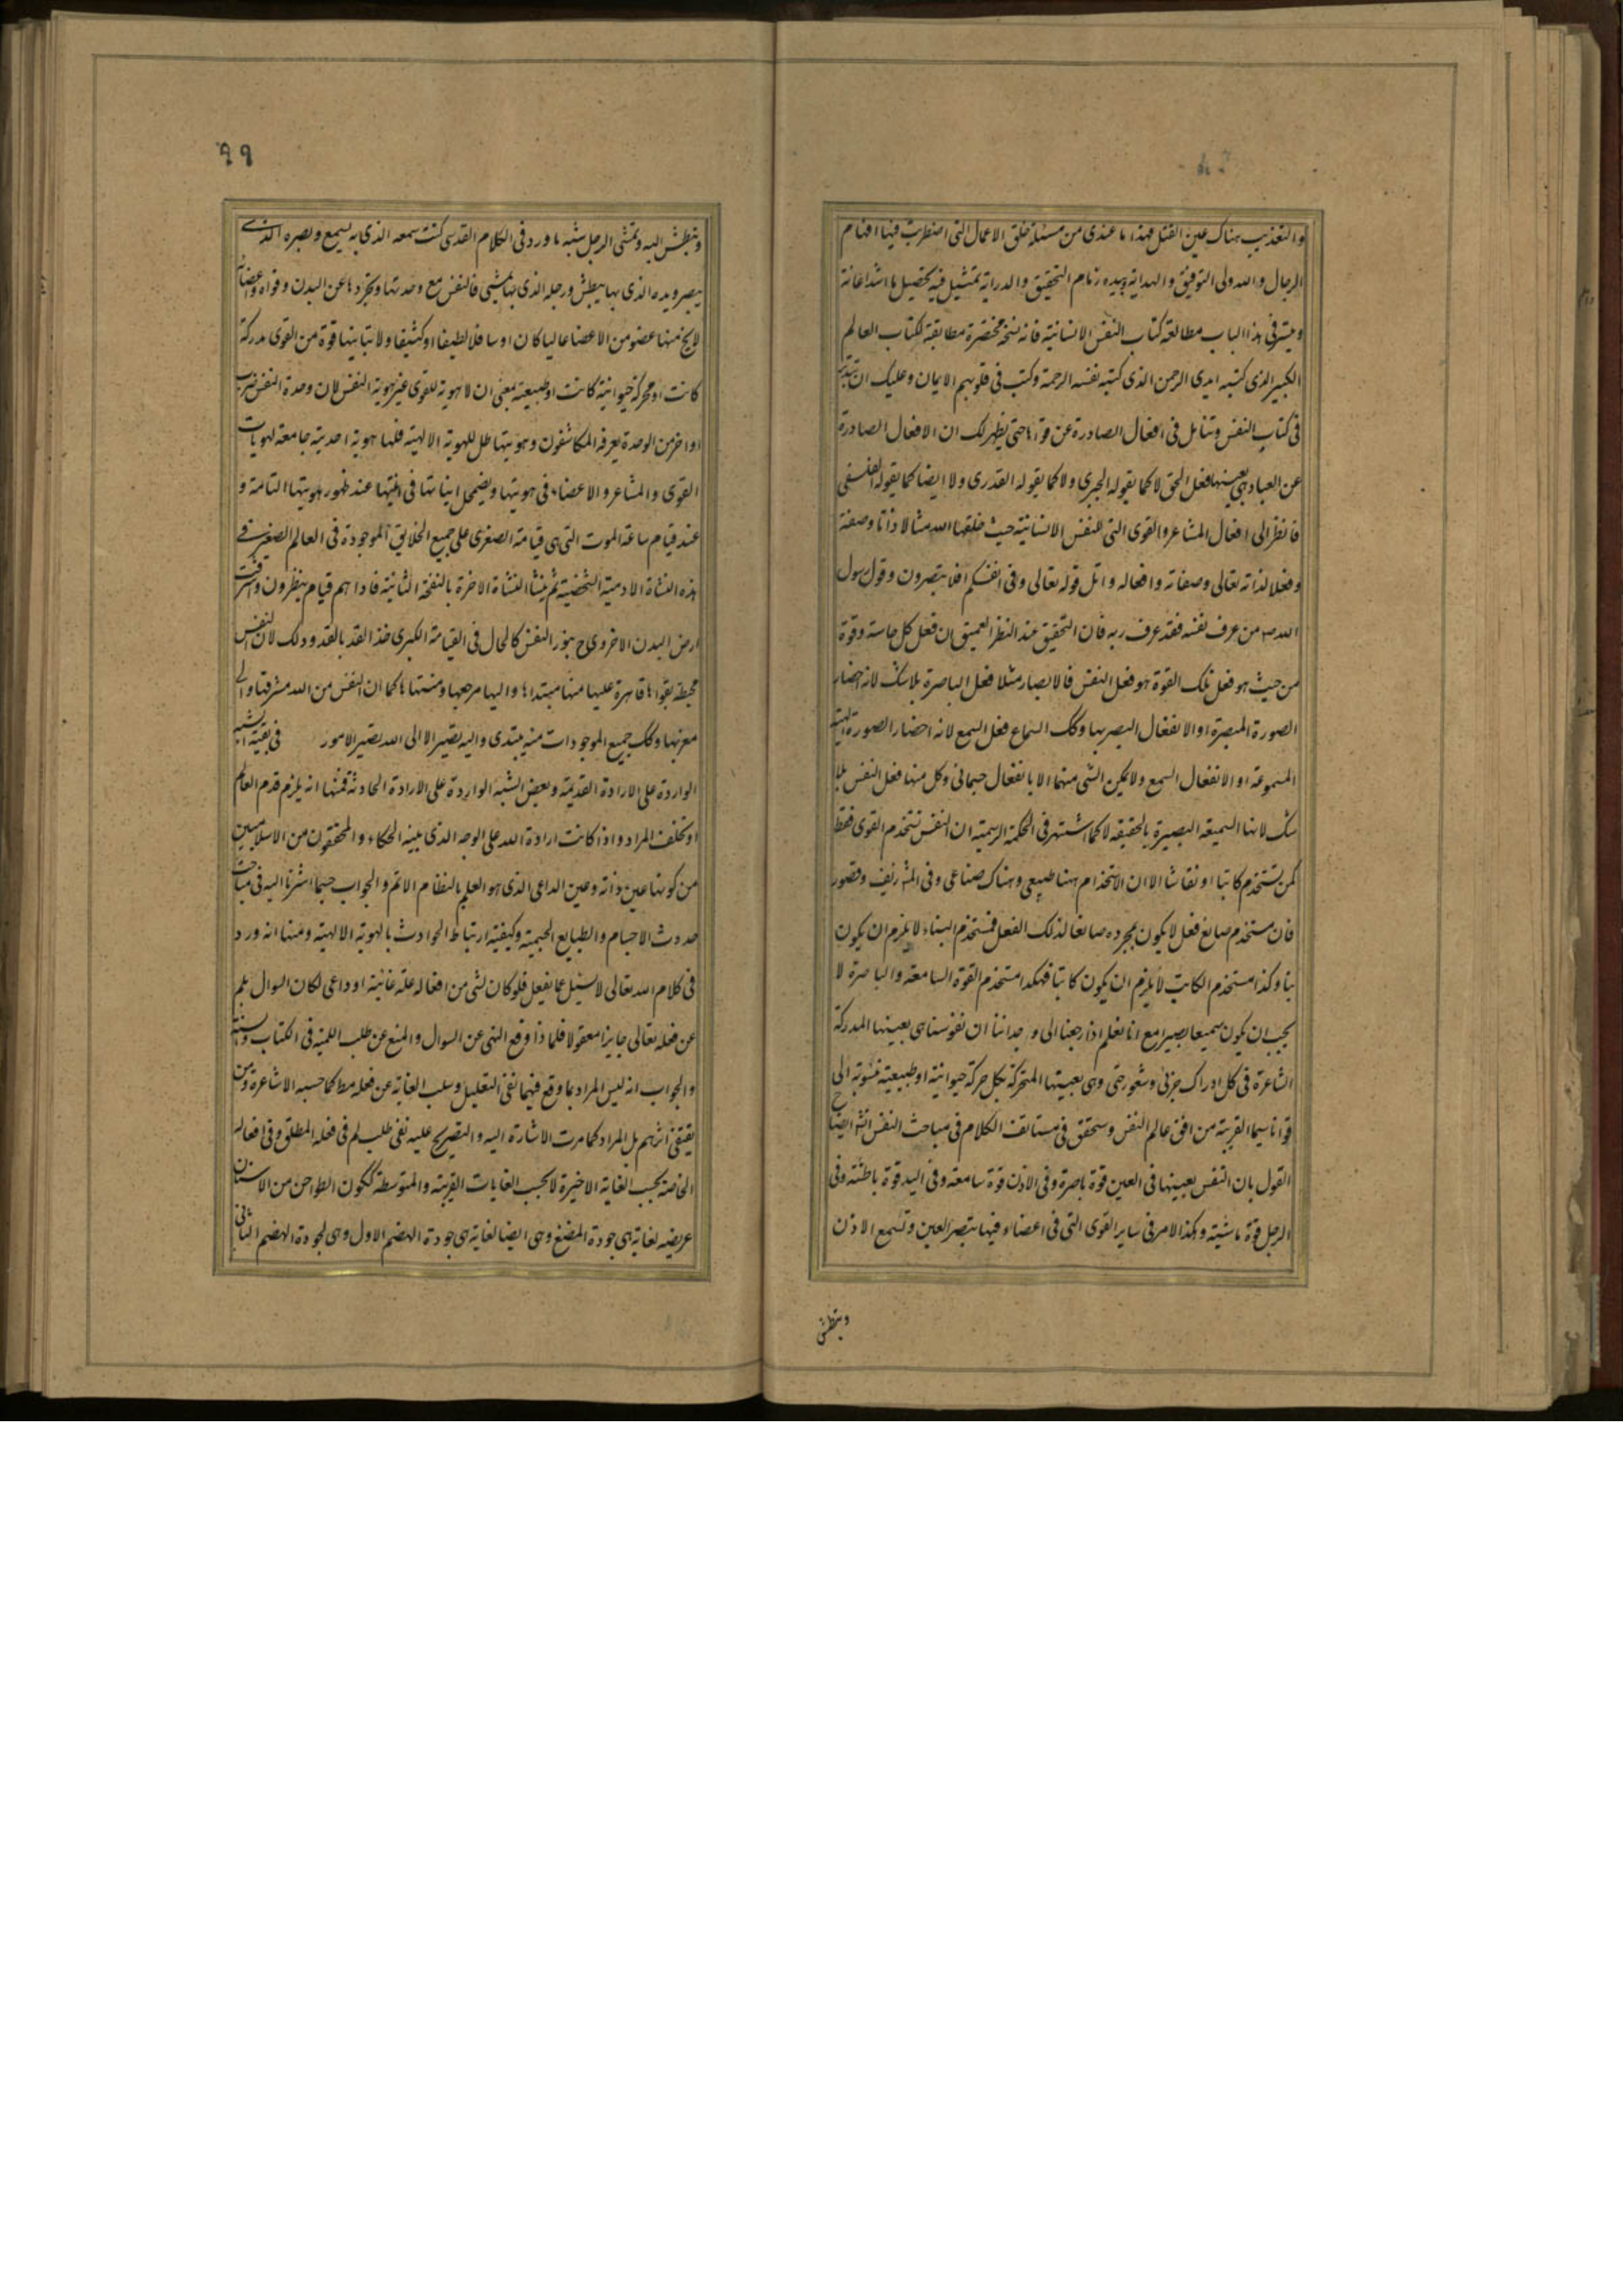 والتعذيب هناك عين القتل فهذا ما عندى من مسئلة خلق الاعمال التى اضطربت فيها افهام
الرجال والله ولى التوفيق والهداية وبيده زمام التحقيق والدراية تمثيل فيه تحصيل ما اشد اعانة
و فى هذا الباب مطالعة كتاب النفس الانسانية فانه نسخة مختصرة مطابقة لكتاب العالم
الكبير الذى كتبه ايدى الرحمن الذى كتب على نفسه الرحمة وكتب فى قلوبهم الايمان وعليك ان تتدبر
فى كتاب النفس وتتامل فى افعال الصادرة عن قواها حتى يظهر لك ان الافعال الصادرة
عن العباد هى بعينها فعل الحق لا كما يقوله الجبرى ولا كما يقوله القدرى ولا ايضا كما يقوله الفلسفى
فانظر الى افعال المشاعر والقوى التى للنفس الانسانية حيث خلقها الله مثالا ذاتا وصفة
وفعلا لذاته تعالى وصفاته وافعاله واتل قوله تعالى وفى انفسكم افلا تبصرون وقول رسول
الله ص من عرف نفسه فقد عرف ربه فان التحقيق عند النظر العميق ان فعل كل حاسة وقوة
من حيث هو فعل تلك القوة هو فعل النفس فالابصار مثلا فعل الباصرة بلا شك لانه احضار
الصورة المبصرة او الانفعال البصر بها وكك السماع فعل السمع لانه احضار الصورة الهيئة
المسموعة او الانفعال السمع ولا يمكن الشى منهما الا بانفعال جسمانى وكل منها فعل النفس بلا
شك لانها السميعة البصيرة بالحقيقة لا كما اشتهر فى الحكمة الرسمية ان النفس تستخدم القوى فقط
كمن يستخدم كاتبا او نقاشا الا ان الاستخدام ههنا طبيعى وهناك صناعى وفى المشهور زيف وقصور
فان مستخدم صانع فعل لا يكون بمجرده صانعا لذلك الفعل فمستخدم البناء لا يلزم ان يكون
بناء وكذا مستخدم الكاتب لا يلزم ان يكون كاتبا فهكذا مستخدم القوة السامعة والباصرة لا
يجب ان يكون سميعا بصيرا مع انا نعلم اذا رجعنا الى وجداننا ان نفوسنا هى بعينها المدركة
الشاعرة فى كل ادراك جزئى وشعور حتى وهى بعينها المتحركة بكل حركة حيوانية او طبيعية منسوبة الى
قوانا سيما القريبة من افق عالم النفس وستحقق فى مستانف الكلام فى مباحث النفس انش ايضاح
القول بان النفس بعينها فى العين قوة باصرة وفى الاذن قوة سامعة وفى اليد قوة باطشة وفى
الرجل قوة ماشية وهكذا الامر فى ساير القوى التى فى اعضاء فبها تبصر العين وتسمع الاذن
وتبطش
٩٩
وتبطش اليد وتمشى الرجل شبه ما ورد فى الكلام القدسى كنت سمعه الذى به يسمع وبصره الذى
يبصر ويده الذى بها يبطش ورجله الذى بها يمشى فالنفس مع وحدتها وتجردها عن البدن وقواه واعضائه
لا يخ منها عضو من الاعضا عاليا كان او سافلا لطيفا او كثيفا ولا تباينها قوة من القوى مدركة
كانت او محركة حيوانية كانت او طبيعية بمعنى ان لا هوية للقوى غير هوية النفس لان وحدة النفس ضرب
اواخر من الوحدة يعرفه المكاشفون وهويتها ظل للهوية الالهية فلها هوية احدية جامعة لهويات
القوى والمشاعر والاعضاء فى هويتها ويضمحل انياتها فى انيتها عند ظهور هويتها التامة و
عند قيام ساعة الموت التى هى قيامة الصغرى على جميع الخلايق الموجودة فى العالم الصغير فى
هذه النشاة الادمية الشخصية ثم ينشا النشاة الاخرة بالنفخة الثانية فاذا هم قيام ينظرون واشرقت
ارض البدن الاخروى ح بنور النفس كالحال فى القيامة الكبرى خذ القد بالقد وذلك لان النفس
محيطة بقواها قاهرة عليها منها مبتداها واليها مرجعها ومنتهاها كما ان النفس من الله مشرقها والى
مغربها وكك جميع الموجودات منه يبتدى واليه يصير الا الى الله تصير الامور فى بقية الشبه
الواردة على الارادة القديمة وبعض الشبه الواردة على الارادة الحادثة فمنها انه يلزم قدم العالم
او تخلف المراد واذا كانت ارادة الله على الوجه الذى بينه الحكماء والمحققون من الاسلاميين
من كونها عين ذاته وعين الداعى الذى هو العلم بالنظام الاتم والجواب حسبما اشرنا اليه فى مباحث
حدوث الاجسام والطبايع الجسمية وكيفية ارتباط الحوادث بالهوية الالهية ومنها انه ورد
فى كلام الله تعالى لا يسئل عما يفعل فلو كان لشى من افعاله علة غائية او داعى لكان السوال بلم
عن فعله تعالى جايزا معقولا فلماذا وقع النهى عن السوال والمنع عن طلب اللمية فى الكتاب والسنة
والجواب انه ليس المراد بما وقع فيهما نفى التعليل وسلب الغاية عن فعله مط كما حسبه الاشاعرة ومن
يقتفى اثرهم بل المراد كما مرت الاشارة اليه والتصريح عليه نفى طلب لم فى فعله المطلق وفى افعاله
الخاصة بحسب الغاية الاخيرة لا بحسب الغايات القريبة والمتوسطة ككون الطواحن من الاسنان
عريضة لغاية هى جودة المضغ وهى ايضا لغاية هى جودة الهضم الاول وهى لجودة الهضم الثانى